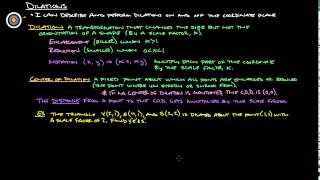 DILATIONS
- I CAN DESCRIBE AND PERFORM DILATION ON AND OFF THE COORDINATE PLANE
DILATION: A TRANSFORMATION THAT CHANGES THE SIZE BUT NOT THE
ORIENTATION OF A SHAPE (BY A SCALE FACTOR, K)
ENLARGEMENT (BIGGER) WHEN K>1
REDUCTION (SMALLER) WHEN 0<K<1
NOTATION (X, Y) → (KX, KY) MULTIPLY EACH PART OF THE COORDINATE
BY THE SCALE FACTOR, K.
CENTER OF DILATION: A FIXED POINT ABOUT WHICH ALL POINTS ARE ENLARGED OR REDUCED
(THE POINT WHERE YOU STRETCH OR SHRINK FROM).
* IF NO CENTER OF DILATION IS MENTIONED THE C.O.D. IS (0,0).
THE DISTANCE FROM A POINT TO THE C.O.D. GETS MULTIPLIED BY THE SCALE FACTOR
EX THE TRIANGLE AND IS DILATED ABOUT THE POINT (1,1) WITH
A SCALE FACTOR OF 2. FIND